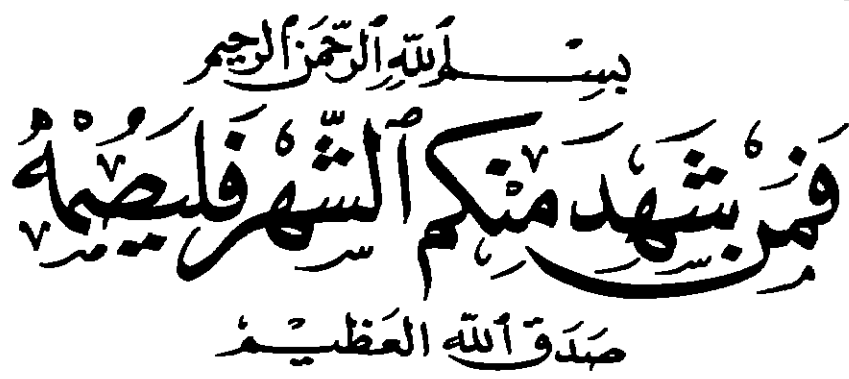 بِسْمِ ٱللَّهِ ٱلرَّحْمَٰنِ ٱلرَّحِيمِ
فَمَن شَهِدَ مِنكُمُ ٱلشَّهْرَ فَلْيَصُمْهُ
صَدَقَ ٱللَّهُ العَظِيمْ